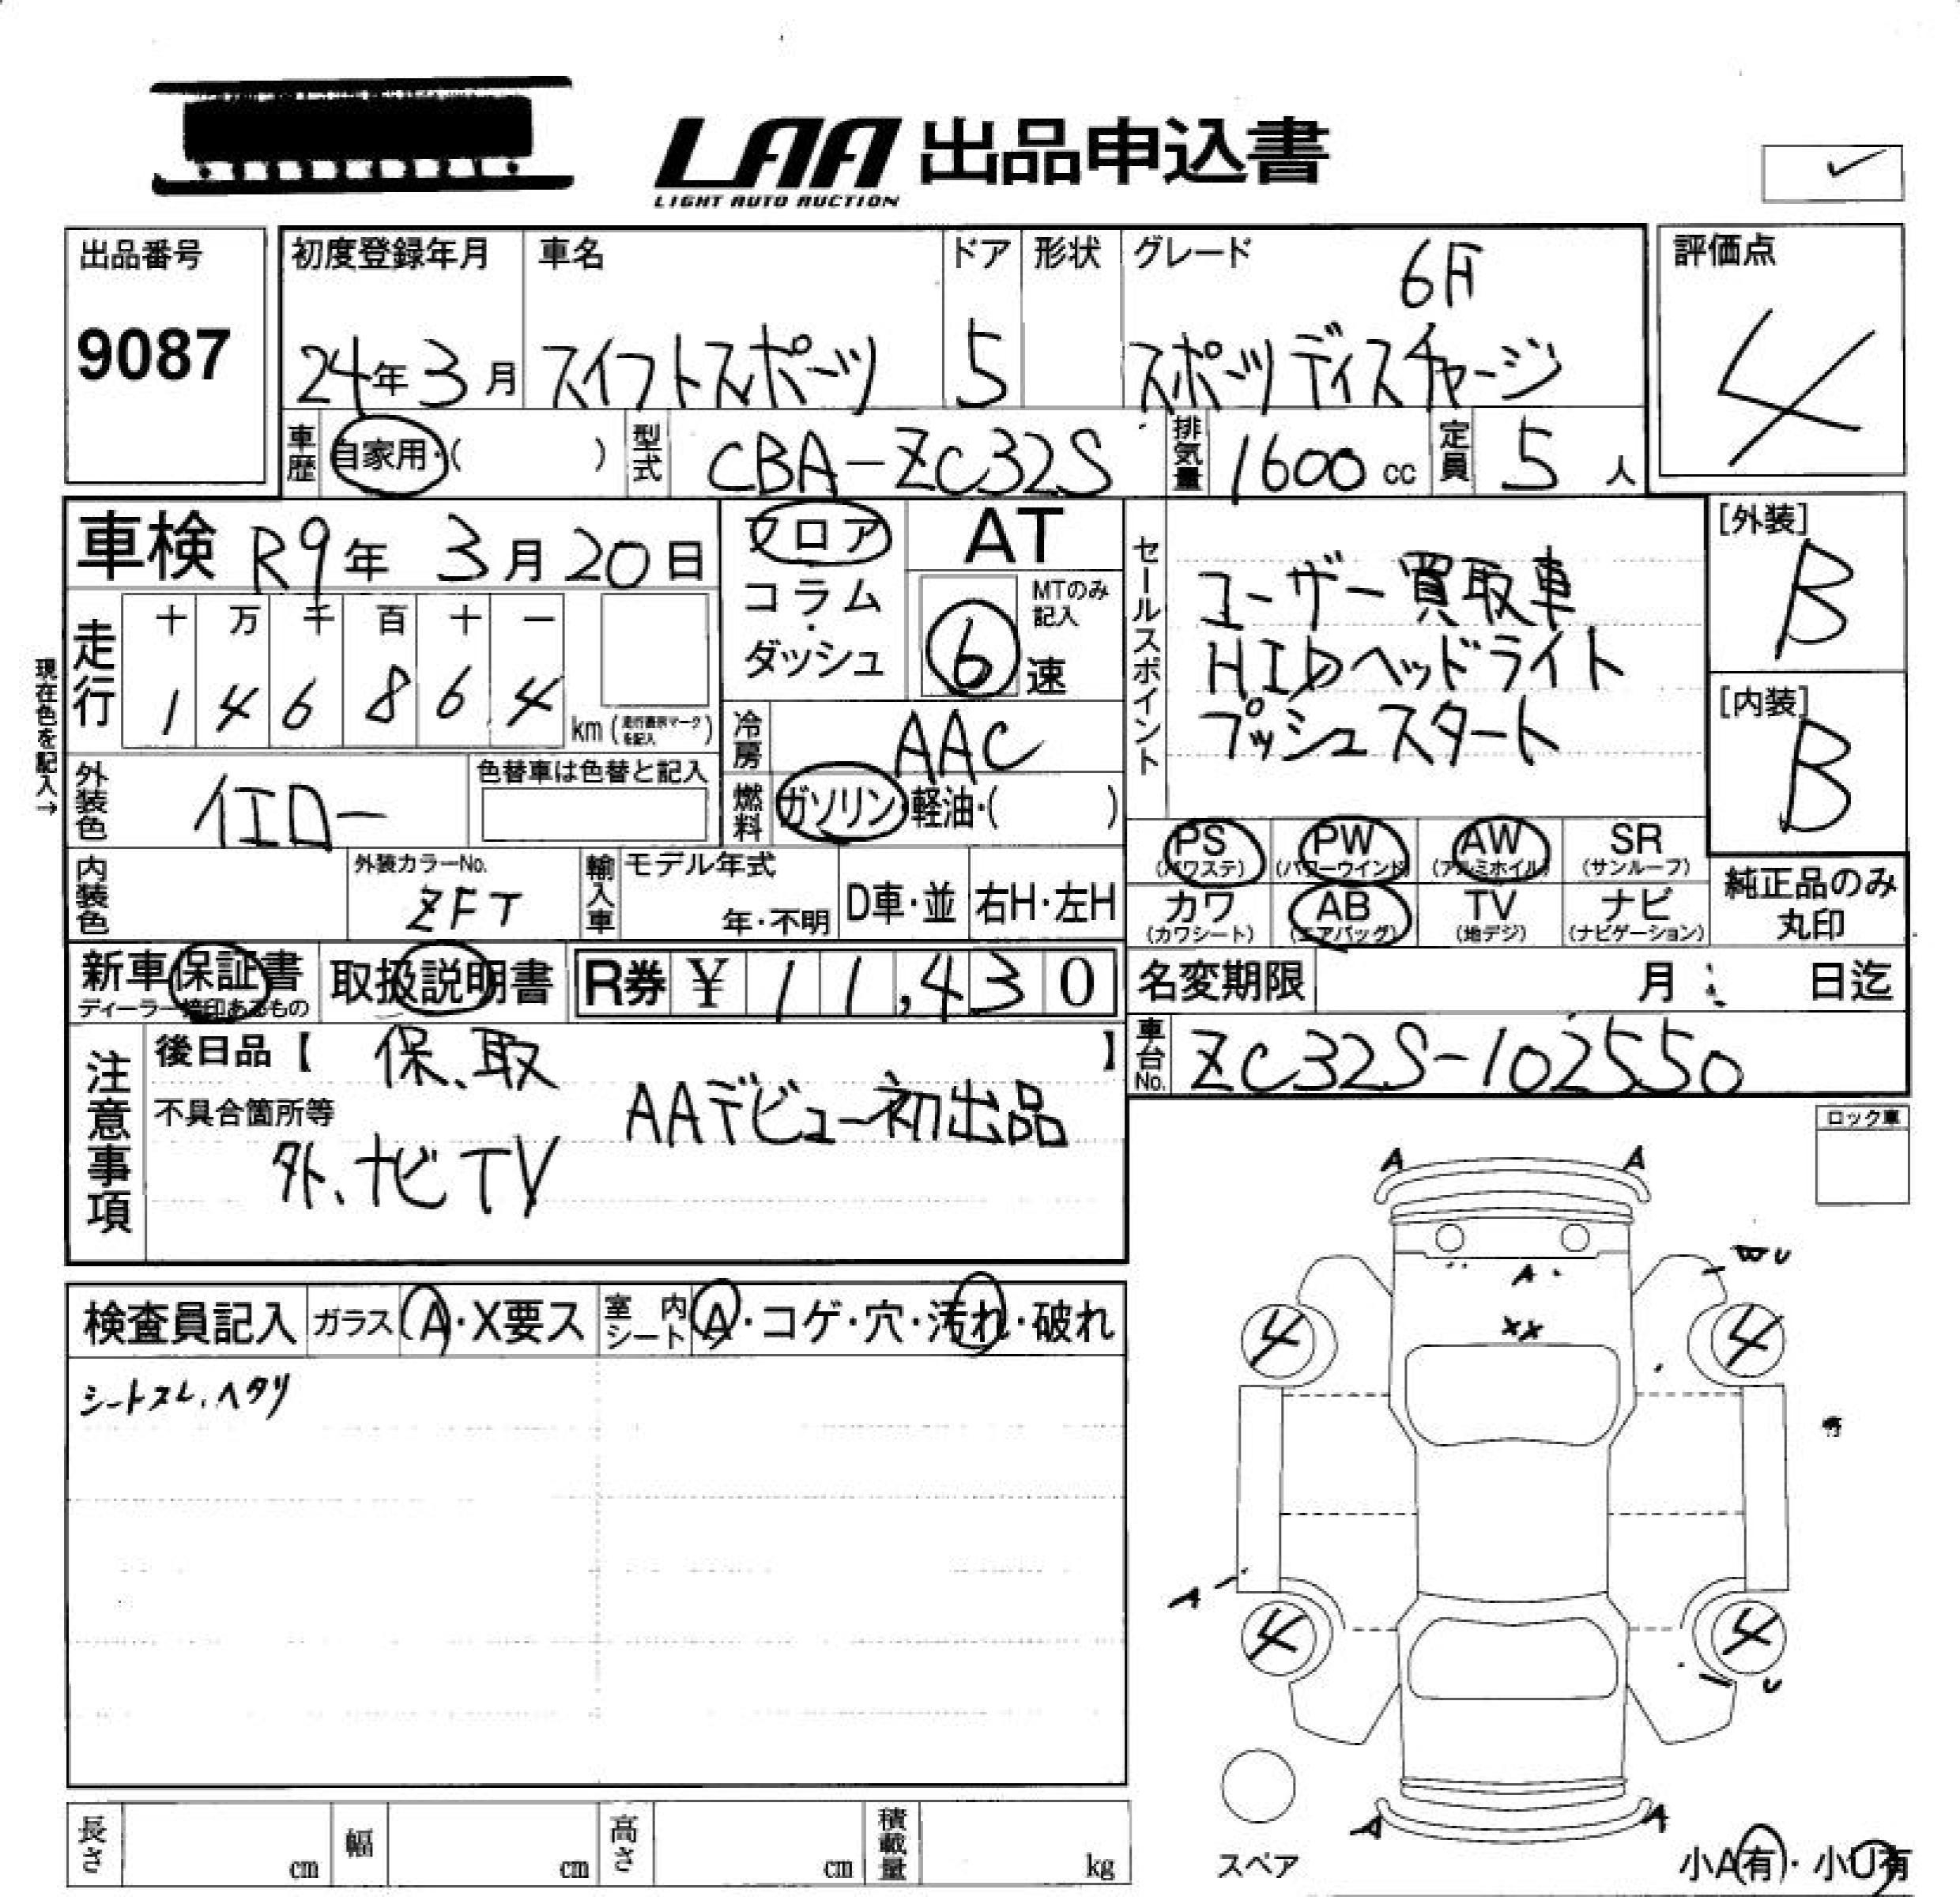 LAA 出品申込書
LIGHT AUTO AUCTION
出品番号
9087
初度登録年月
24年3月
車名
スイフトスポーツ
ドア
5
形状
グレード
6F
スポーツディスチャージ
評価点
4
車歴 自家用・( )
型式 CBA-ZC32S
排気量 1600 cc
定員 5 人
車検 R9年 3月20日
フロア
コラム
・
ダッシュ
AT
MTのみ
記入
6 速
セールスポイント
ユーザー買取車
HIDヘッドライト
プッシュスタート
[外装]
B
[内装]
B
現在色を記入→
走行
十 万 千 百 十 一
1 4 6 8 6 4
km (走行表示マークを記入)
冷房 AAC
外装色 イエロー
色替車は色替と記入
燃料 ガソリン・軽油・( )
PS (パワステ)
PW (パワーウインド)
AW (アルミホイル)
SR (サンルーフ)
カワ (カワシート)
AB (エアバッグ)
TV (地デジ)
ナビ (ナビゲーション)
純正品のみ
丸印
内装色
外装カラーNo.
ZFT
輸入車
モデル年式
年・不明
D車・並
右H・左H
新車保証書
ディーラー捺印あるもの
取扱説明書
R券 ¥ 11,430
名変期限 月 日迄
車台No. ZC32S-102550
注意事項
後日品【 保、取 】
不具合箇所等
AAデビュー初出品
外、ナビTV
ロック車
検査員記入
ガラス A・X要ス
室内シート A・コゲ・穴・汚れ・破れ
シートスレ、ヘタリ
A A
A
W U
XX
4 4
A
4 4
U
A A
スペア
小A有・小U有
長さ cm
幅 cm
高さ cm
積載量 kg